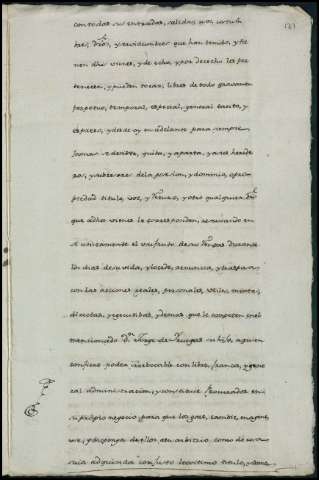 con todas sus entradas, salidas, usos, costum
bres, dros, y servidumbres que han tenido, y tie
nen dhos vienes, y de echo, y por derecho les per
tenecen, y pueden tocar, libres de todo gravamen
perpetuo, temporal, especial, general tacito, y
expreso, y desde oy en adelante para siempre
se desiste, quita, y aparta, y a sus herede
ros, y subcesores de la posesion, y dominio, o pro
piedad titulo, voz, y recurso, y otro qualquiera dro
que a dhos vienes le corresponden, reservando en
si unicamente el usufructo de
los dias de su vida, y lo cede, renuncia, y traspasa
con las acciones reales, personales, utiles, mixtas,
directas, y executibas, y demas que le competen en el
mencionado Dn Jorge de su hijo, a quien
confiere poder irrebocable con libre, franca, y gene
ral administracion, y constituie Procurador en
su propio negocio para que los goze, cambie, enagene,
use, y disponga de ellos, a su arbitrio, como de cosa
suia adquirida con justo lexitimo titulo, y